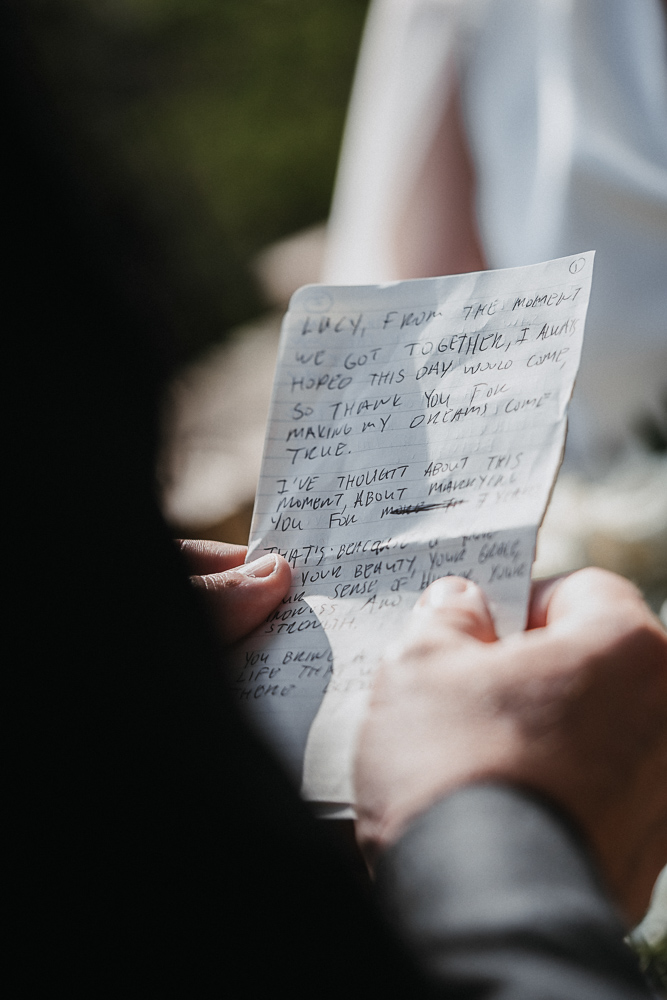 1
LUCY, FROM THE MOMENT
WE GOT TOGETHER, I ALWAYS
HOPED THIS DAY WOULD COME,
SO THANK YOU FOR
MAKING MY DREAMS COME
TRUE.
I'VE THOUGHT ABOUT THIS
MOMENT, ABOUT MARRYING
YOU FOR 7 YEARS
THAT'S BECAUSE
YOUR BEAUTY, YOUR GRACE,
SENSE OF YOUR
AND
STRENGTH.
YOU BRING A
LIFE THAT